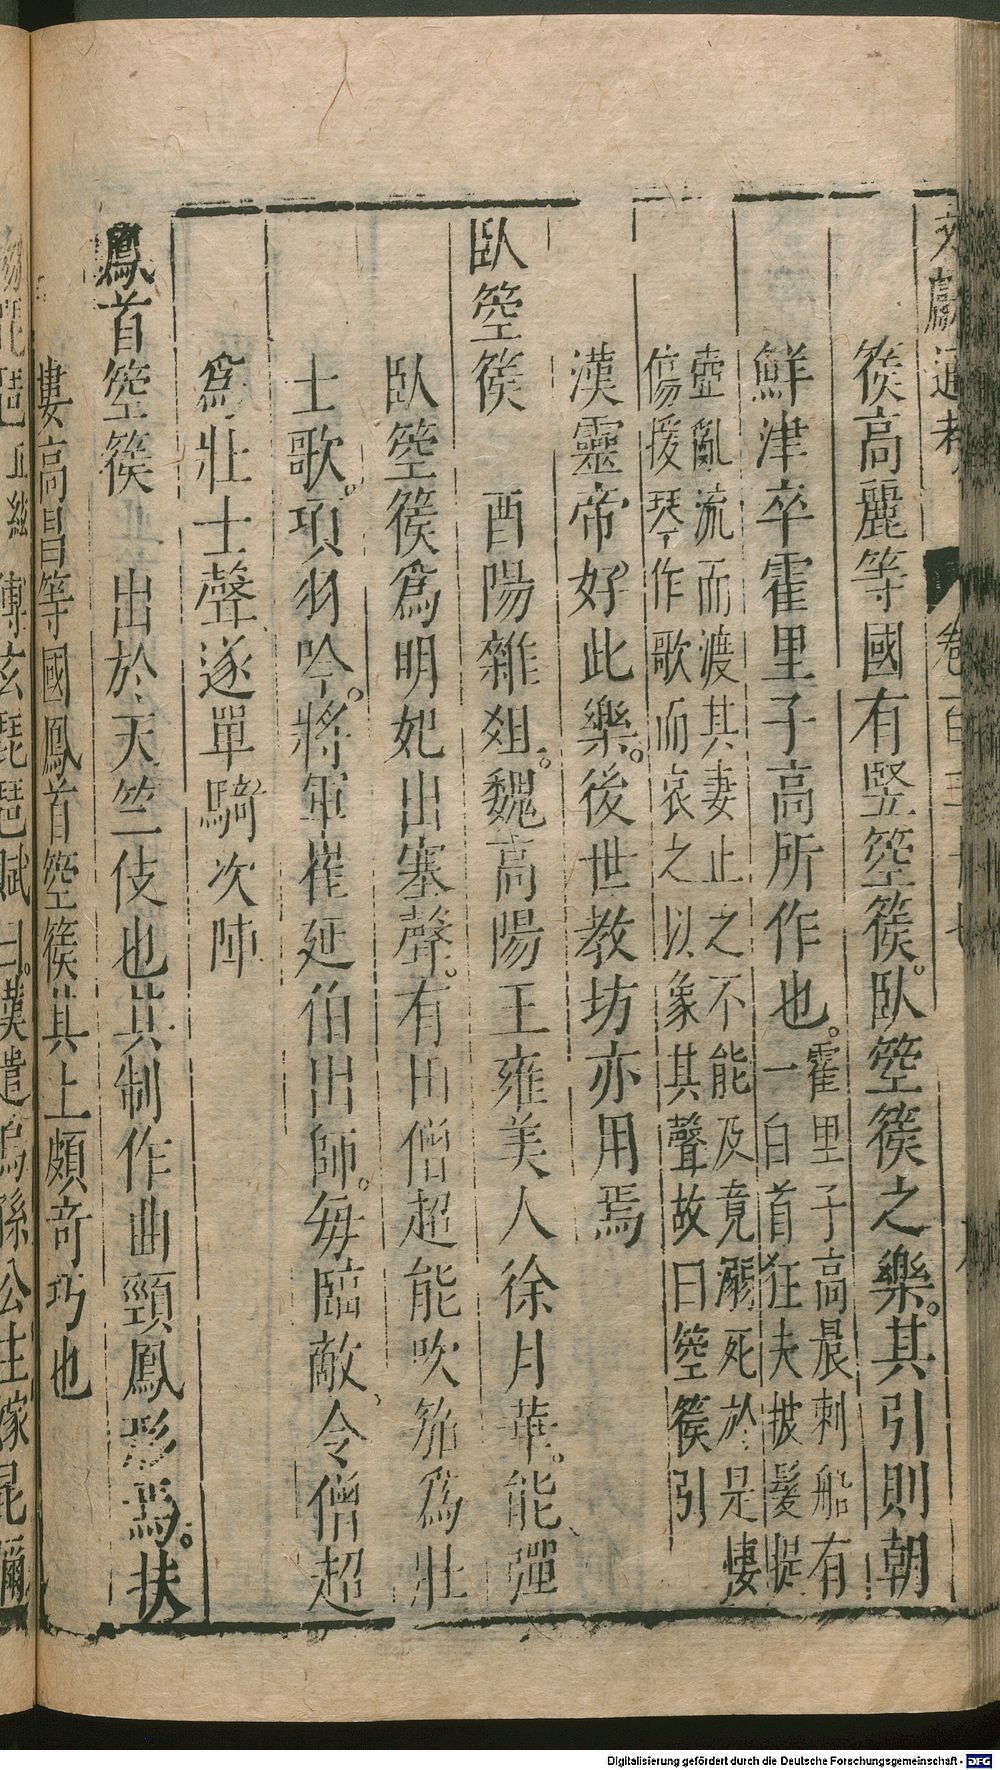 文獻通考 卷一百三十七
篌高麗等國有竪箜篌。臥箜篌之樂。其引則朝
鮮津卒霍里子高所作也。霍里子高晨刺船有
一白首狂夫披髮提
壺亂流而渡其妻止之不能及竟溺死於是悽
傷援琴作歌而哀之以象其聲故曰箜篌引
漢靈帝好此樂。後世教坊亦用焉
臥箜篌 酉陽雜爼。魏高陽王雍美人徐月華。能彈
臥箜篌爲明妃出塞聲。有田僧超能吹笳爲壯
士歌。項羽吟。將軍崔延伯出師。每臨敵令僧超
爲壯士聲遂單騎次陣
鳳首箜篌 出於天竺伎也其制作曲頸鳳形焉。扶
婁高昌等國鳳首箜篌其上頗奇巧也
琵琶 傅玄琵琶賦曰。漢遣烏孫公主嫁昆彌
Digitalisierung gefördert durch die Deutsche Forschungsgemeinschaft - DFG